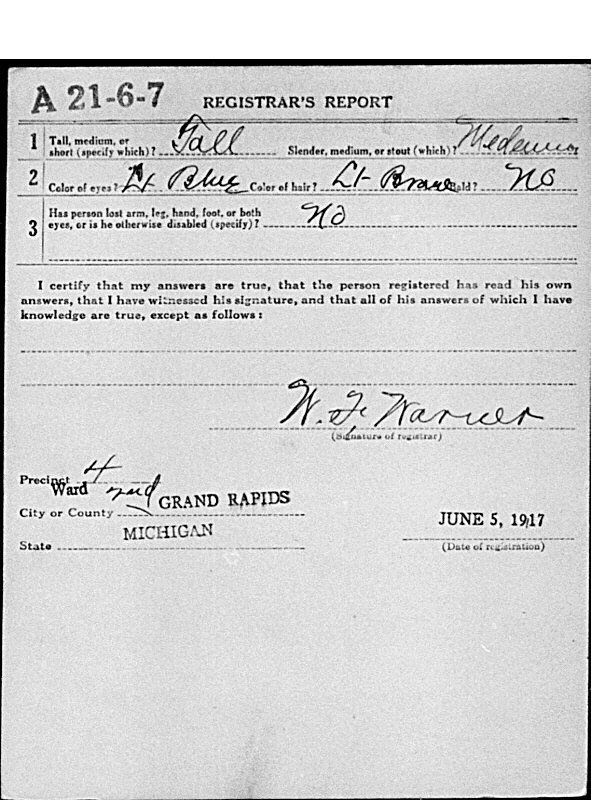 A 21-6-7 REGISTRAR'S REPORT
1 Tall, medium, or short (specify which)? Tall Slender, medium, or stout (which)? Medium
2 Color of eyes? Lt Blue Color of hair? Lt Brown Bald? No
3 Has person lost arm, leg, hand, foot, or both
eyes, or is he otherwise disabled (specify)? No
I certify that my answers are true, that the person registered has read his own
answers, that I have witnessed his signature, and that all of his answers of which I have
knowledge are true, except as follows:
W. F. Warner
(Signature of registrar)
Precinct 4
Ward
City or County GRAND RAPIDS
State MICHIGAN
JUNE 5, 1917
(Date of registration)